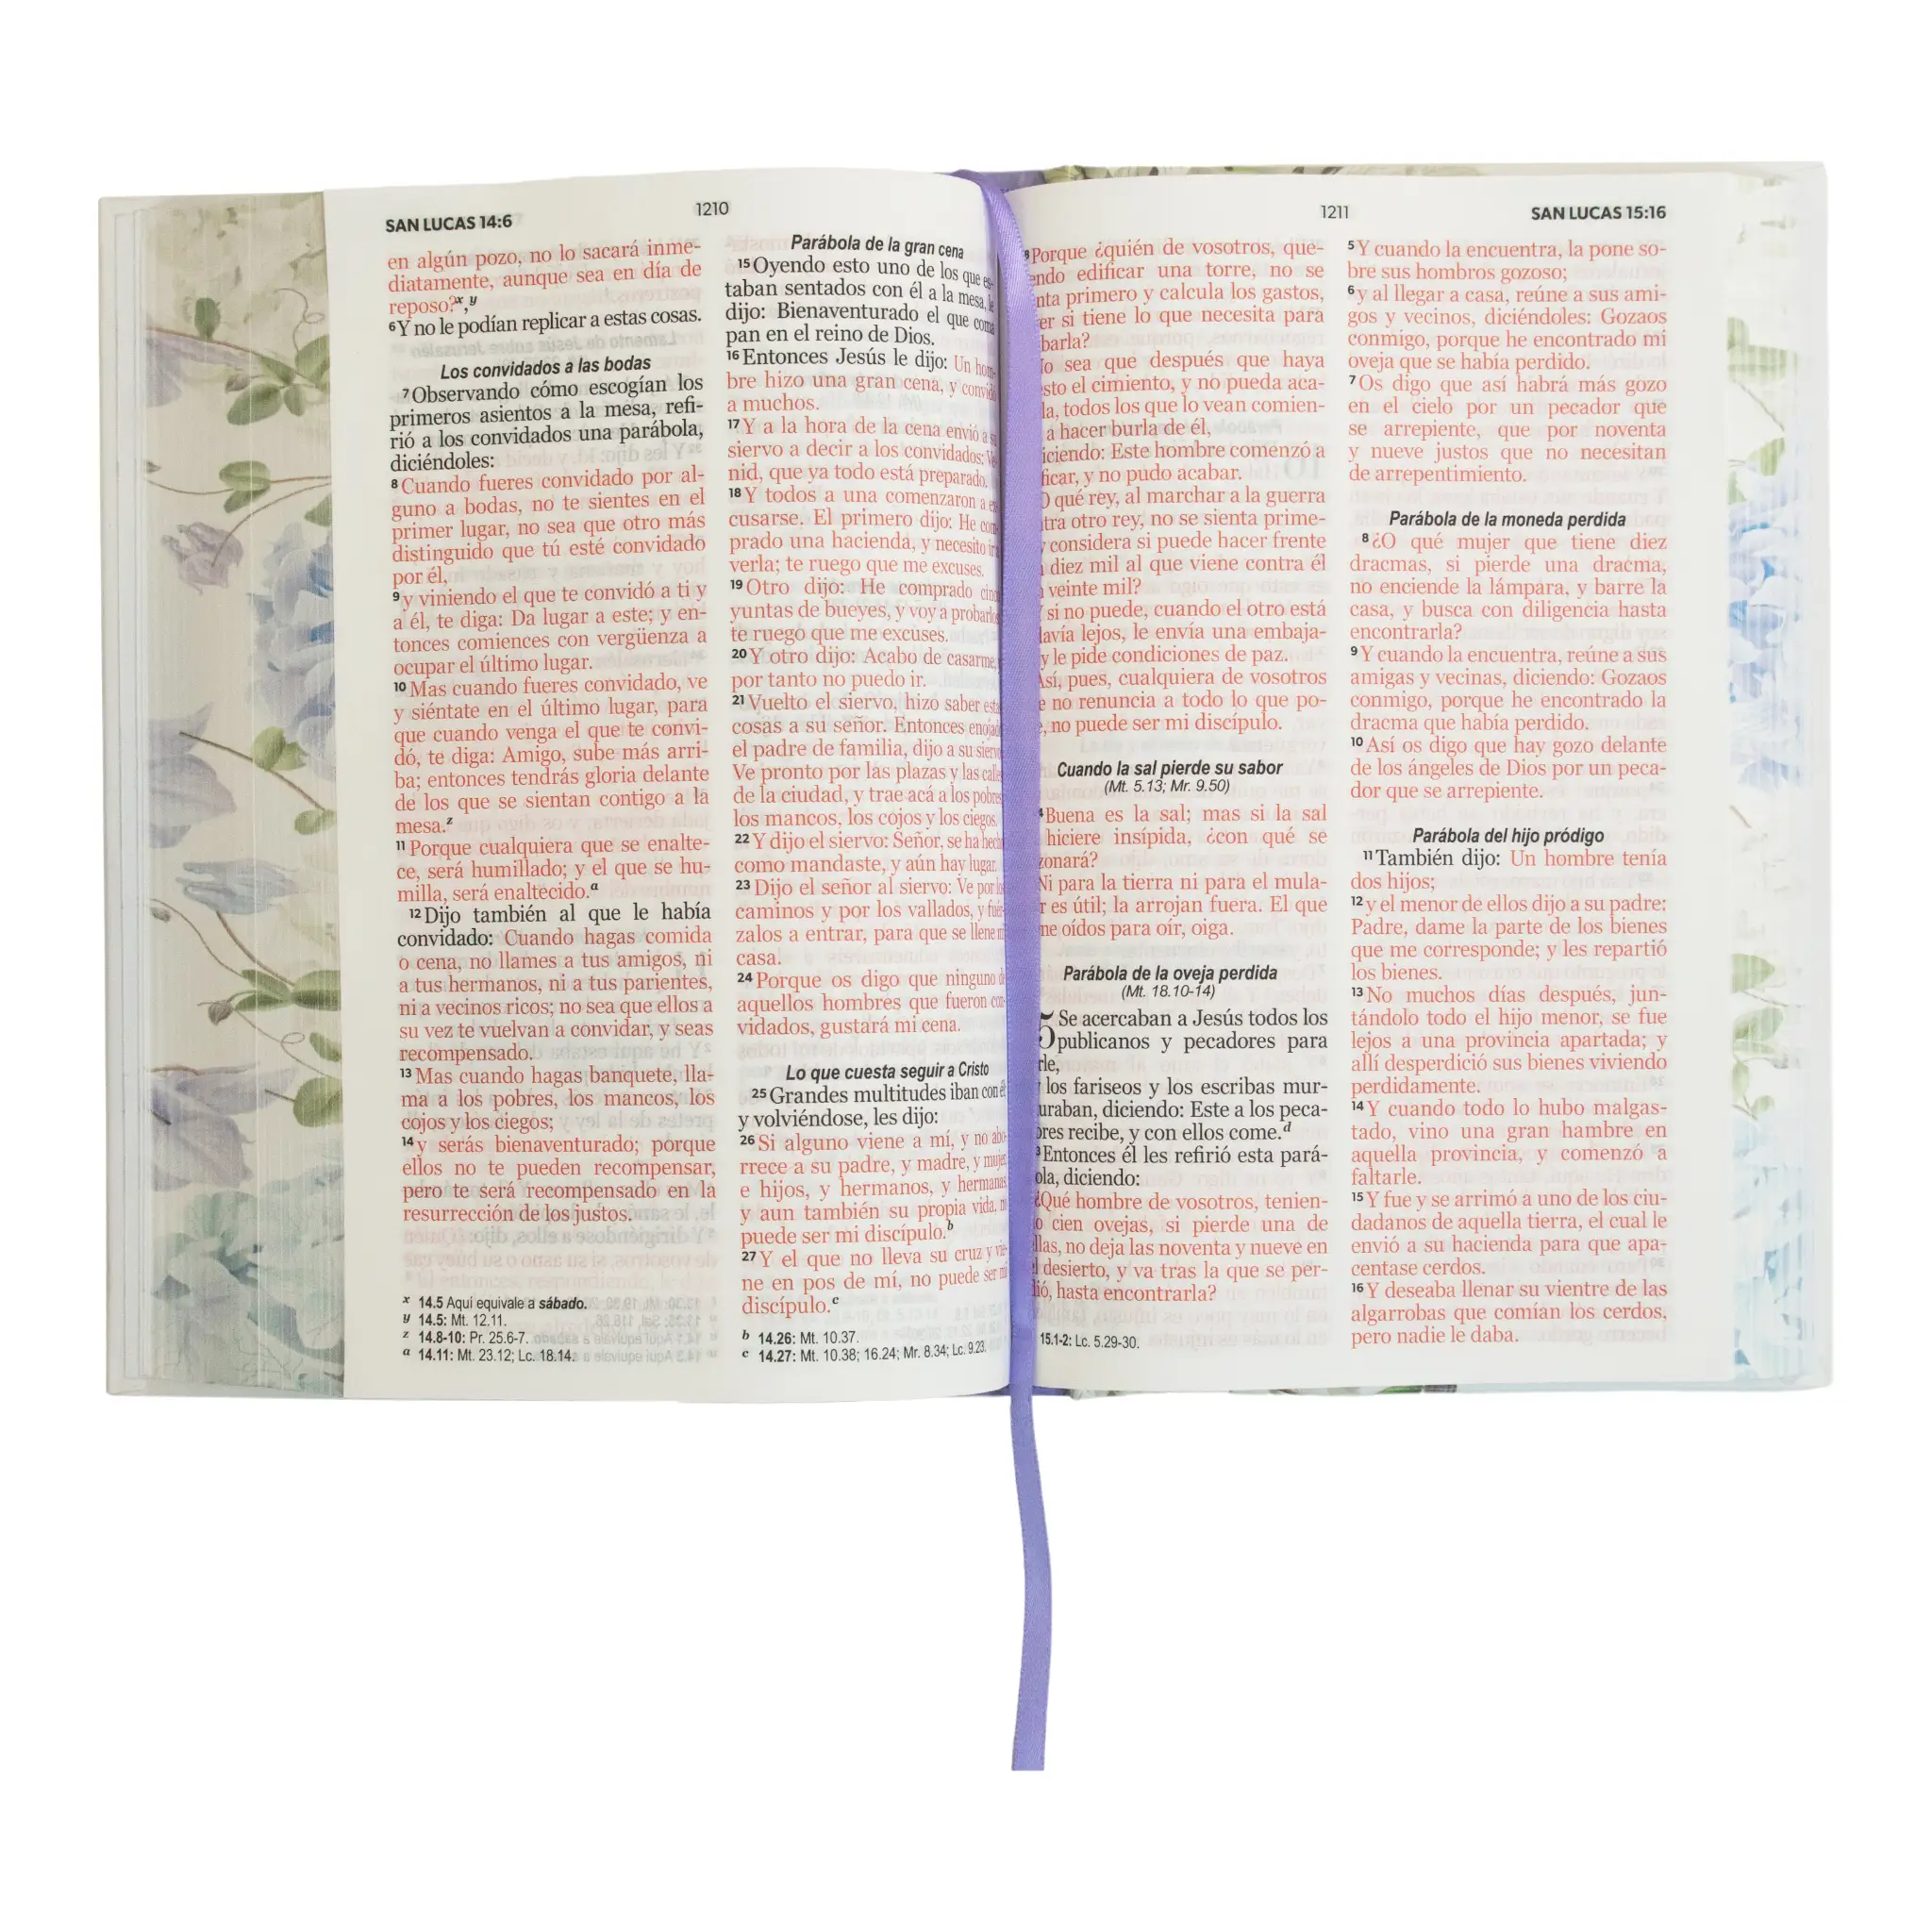 SAN LUCAS 14:6
1210
en algún pozo, no lo sacará inme-
diatamente, aunque sea en día de
reposo?x,y
6Y no le podían replicar a estas cosas.
Los convidados a las bodas
7Observando cómo escogían los
primeros asientos a la mesa, refi-
rió a los convidados una parábola,
diciéndoles:
8Cuando fueres convidado por al-
guno a bodas, no te sientes en el
primer lugar, no sea que otro más
distinguido que tú esté convidado
por él,
9y viniendo el que te convidó a ti y
a él, te diga: Da lugar a este; y en-
tonces comiences con vergüenza a
ocupar el último lugar.
10Mas cuando fueres convidado, ve
y siéntate en el último lugar, para
que cuando venga el que te convi-
dó, te diga: Amigo, sube más arri-
ba; entonces tendrás gloria delante
de los que se sientan contigo a la
mesa.z
11Porque cualquiera que se enalte-
ce, será humillado; y el que se hu-
milla, será enaltecido.a
12Dijo también al que le había
convidado: Cuando hagas comida
o cena, no llames a tus amigos, ni
a tus hermanos, ni a tus parientes,
ni a vecinos ricos; no sea que ellos a
su vez te vuelvan a convidar, y seas
recompensado.
13Mas cuando hagas banquete, lla-
ma a los pobres, los mancos, los
cojos y los ciegos;
14y serás bienaventurado; porque
ellos no te pueden recompensar,
pero te será recompensado en la
resurrección de los justos.
x 14.5 Aquí equivale a sábado.
y 14.5: Mt. 12.11.
z 14.8-10: Pr. 25.6-7.
a 14.11: Mt. 23.12; Lc. 18.14.
Parábola de la gran cena
15Oyendo esto uno de los que es-
taban sentados con él a la mesa, le
dijo: Bienaventurado el que coma
pan en el reino de Dios.
16Entonces Jesús le dijo: Un hom-
bre hizo una gran cena, y convidó
a muchos.
17Y a la hora de la cena envió a su
siervo a decir a los convidados: Ve-
nid, que ya todo está preparado.
18Y todos a una comenzaron a ex-
cusarse. El primero dijo: He com-
prado una hacienda, y necesito ir a
verla; te ruego que me excuses.
19Otro dijo: He comprado cinco
yuntas de bueyes, y voy a probarlos
te ruego que me excuses.
20Y otro dijo: Acabo de casarme, y
por tanto no puedo ir.
21Vuelto el siervo, hizo saber estas
cosas a su señor. Entonces enojado
el padre de familia, dijo a su siervo
Ve pronto por las plazas y las calles
de la ciudad, y trae acá a los pobres
los mancos, los cojos y los ciegos.
22Y dijo el siervo: Señor, se ha hecho
como mandaste, y aún hay lugar.
23Dijo el señor al siervo: Ve por los
caminos y por los vallados, y fuér-
zalos a entrar, para que se llene mi
casa.
24Porque os digo que ninguno de
aquellos hombres que fueron con-
vidados, gustará mi cena.
Lo que cuesta seguir a Cristo
25Grandes multitudes iban con él
y volviéndose, les dijo:
26Si alguno viene a mí, y no abo-
rrece a su padre, y madre, y mujer
e hijos, y hermanos, y hermanas
y aun también su propia vida, no
puede ser mi discípulo.b
27Y el que no lleva su cruz y vie-
ne en pos de mí, no puede ser mi
discípulo.c
b 14.26: Mt. 10.37.
c 14.27: Mt. 10.38; 16.24; Mr. 8.34; Lc. 9.23.
1211
SAN LUCAS 15:16
8Porque ¿quién de vosotros, que-
endo edificar una torre, no se
nta primero y calcula los gastos,
er si tiene lo que necesita para
barla?
o sea que después que haya
sto el cimiento, y no pueda aca-
la, todos los que lo vean comien-
a hacer burla de él,
iciendo: Este hombre comenzó a
ficar, y no pudo acabar.
O qué rey, al marchar a la guerra
tra otro rey, no se sienta prime-
y considera si puede hacer frente
diez mil al que viene contra él
veinte mil?
si no puede, cuando el otro está
avía lejos, le envía una embaja-
y le pide condiciones de paz.
Así, pues, cualquiera de vosotros
e no renuncia a todo lo que po-
e, no puede ser mi discípulo.
Cuando la sal pierde su sabor
(Mt. 5.13; Mr. 9.50)
4Buena es la sal; mas si la sal
hiciere insípida, ¿con qué se
zonará?
Ni para la tierra ni para el mula-
r es útil; la arrojan fuera. El que
ne oídos para oír, oiga.
Parábola de la oveja perdida
(Mt. 18.10-14)
5 Se acercaban a Jesús todos los
publicanos y pecadores para
rle,
los fariseos y los escribas mur-
uraban, diciendo: Este a los peca-
ores recibe, y con ellos come.d
3Entonces él les refirió esta pará-
ola, diciendo:
¿Qué hombre de vosotros, tenien-
o cien ovejas, si pierde una de
llas, no deja las noventa y nueve en
l desierto, y va tras la que se per-
dió, hasta encontrarla?
15.1-2: Lc. 5.29-30.
5Y cuando la encuentra, la pone so-
bre sus hombros gozoso;
6y al llegar a casa, reúne a sus ami-
gos y vecinos, diciéndoles: Gozaos
conmigo, porque he encontrado mi
oveja que se había perdido.
7Os digo que así habrá más gozo
en el cielo por un pecador que
se arrepiente, que por noventa
y nueve justos que no necesitan
de arrepentimiento.
Parábola de la moneda perdida
8¿O qué mujer que tiene diez
dracmas, si pierde una dracma,
no enciende la lámpara, y barre la
casa, y busca con diligencia hasta
encontrarla?
9Y cuando la encuentra, reúne a sus
amigas y vecinas, diciendo: Gozaos
conmigo, porque he encontrado la
dracma que había perdido.
10Así os digo que hay gozo delante
de los ángeles de Dios por un peca-
dor que se arrepiente.
Parábola del hijo pródigo
11También dijo: Un hombre tenía
dos hijos;
12y el menor de ellos dijo a su padre:
Padre, dame la parte de los bienes
que me corresponde; y les repartió
los bienes.
13No muchos días después, jun-
tándolo todo el hijo menor, se fue
lejos a una provincia apartada; y
allí desperdició sus bienes viviendo
perdidamente.
14Y cuando todo lo hubo malgas-
tado, vino una gran hambre en
aquella provincia, y comenzó a
faltarle.
15Y fue y se arrimó a uno de los ciu-
dadanos de aquella tierra, el cual le
envió a su hacienda para que apa-
centase cerdos.
16Y deseaba llenar su vientre de las
algarrobas que comían los cerdos,
pero nadie le daba.